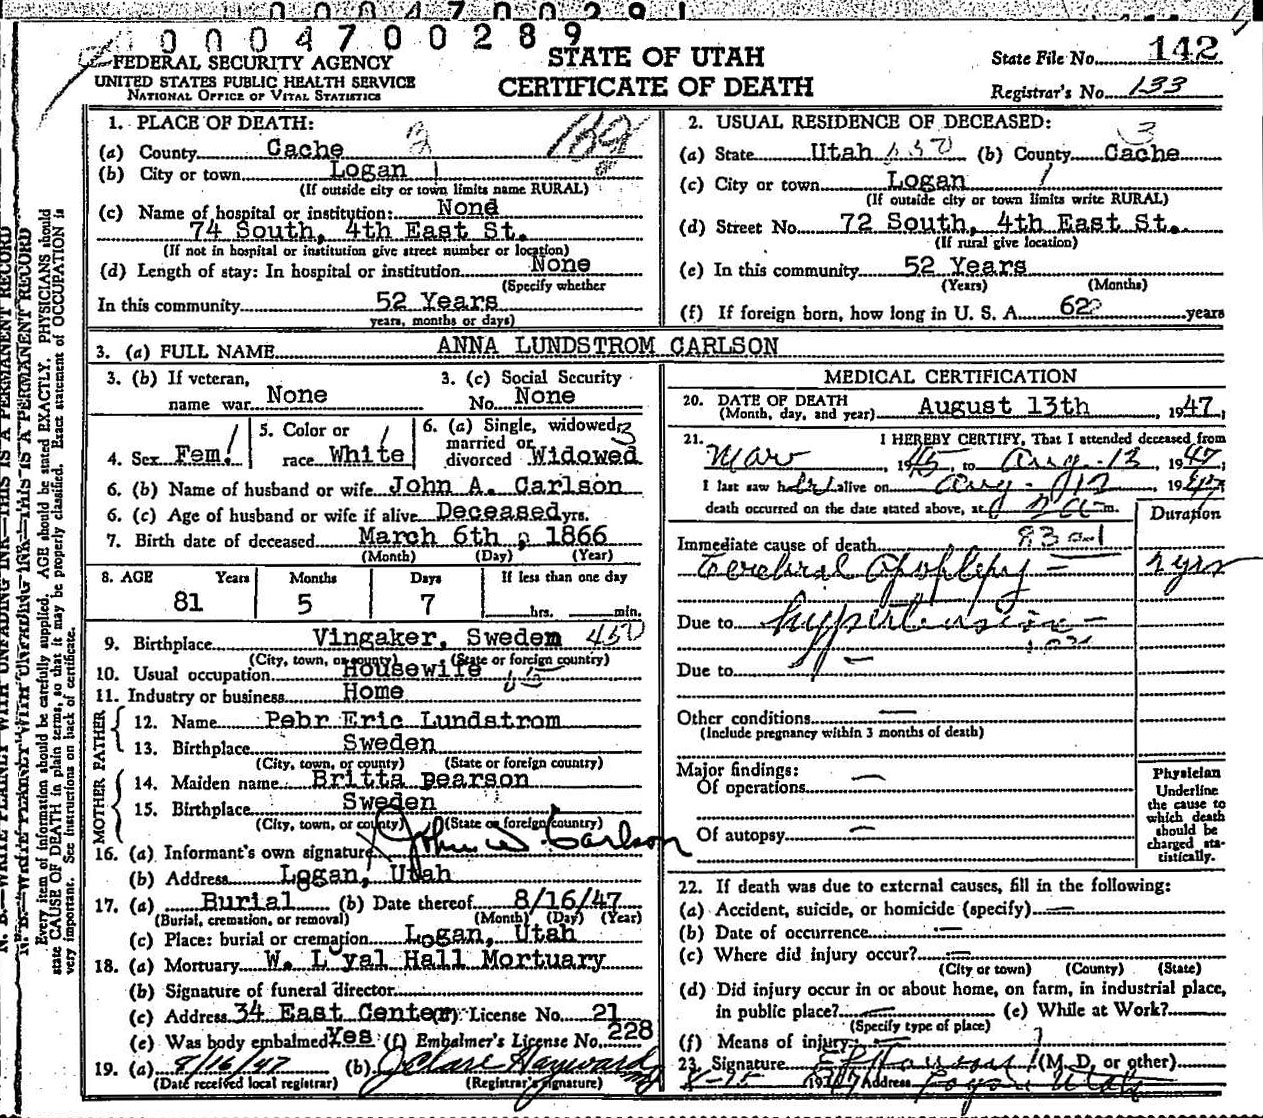 0004700289
FEDERAL SECURITY AGENCY
UNITED STATES PUBLIC HEALTH SERVICE
NATIONAL OFFICE OF VITAL STATISTICS
STATE OF UTAH
CERTIFICATE OF DEATH
State File No. 142
Registrar's No. 133
1. PLACE OF DEATH:
(a) County Cache
(b) City or town Logan
(If outside city or town limits name RURAL)
(c) Name of hospital or institution: None
74 South, 4th East St.
(If not in hospital or institution give street number or location)
(d) Length of stay: In hospital or institution None
(Specify whether
In this community 52 Years
years, months or days)
2. USUAL RESIDENCE OF DECEASED:
(a) State Utah (b) County Cache
(c) City or town Logan
(If outside city or town limits write RURAL)
(d) Street No. 72 South, 4th East St.
(If rural give location)
(e) In this community 52 Years
(Years) (Months)
(f) If foreign born, how long in U. S. A. 62 years
3. (a) FULL NAME ANNA LUNDSTROM CARLSON
3. (b) If veteran, name war None
3. (c) Social Security No. None
4. Sex Fem.
5. Color or race White
6. (a) Single, widowed, married or divorced Widowed
6. (b) Name of husband or wife John A. Carlson
6. (c) Age of husband or wife if alive Deceased yrs.
7. Birth date of deceased March 6th, 1866
(Month) (Day) (Year)
8. AGE Years Months Days If less than one day
81 5 7 hrs. min.
9. Birthplace Vingaker, Sweden 450
(City, town, or county) (State or foreign country)
10. Usual occupation Housewife
11. Industry or business Home
FATHER
12. Name Pehr Eric Lundstrom
13. Birthplace Sweden
(City, town, or county) (State or foreign country)
MOTHER
14. Maiden name Britta pearson
15. Birthplace Sweden
(City, town, or county) (State or foreign country)
16. (a) Informant's own signature John W. Carlson
(b) Address Logan, Utah
17. (a) Burial (b) Date thereof 8/16/47
(Burial, cremation, or removal) (Month) (Day) (Year)
(c) Place: burial or cremation Logan, Utah
18. (a) Mortuary W. Loyal Hall Mortuary
(b) Signature of funeral director
(c) Address 34 East Center License No. 21
(e) Was body embalmed Yes (f) Embalmer's License No. 228
19. (a) 8/16/47 (b) J Clare Hayward
(Date received local registrar) (Registrar's signature)
MEDICAL CERTIFICATION
20. DATE OF DEATH
(Month, day, and year) August 13th, 1947,
21. I HEREBY CERTIFY, That I attended deceased from
Mar, 1945, to Aug. 13 1947
I last saw her alive on Aug. 12 1947
death occurred on the date stated above, at m.
Duration
Immediate cause of death 83a-1
Cerebral apoplexy 2 yrs
Due to hypertension
Due to
Other conditions
(Include pregnancy within 3 months of death)
Major findings:
Of operations
Of autopsy
Physician
Underline
the cause to
which death
should be
charged sta-
tistically.
22. If death was due to external causes, fill in the following:
(a) Accident, suicide, or homicide (specify)
(b) Date of occurrence
(c) Where did injury occur?
(City or town) (County) (State)
(d) Did injury occur in or about home, on farm, in industrial place,
in public place? (e) While at Work?
(Specify type of place)
(f) Means of injury
23. Signature (M. D. or other)
8-15 1947 Address Utah
N. B.—WRITE PLAINLY WITH UNFADING INK—THIS IS A PERMANENT RECORD
Every item of information should be carefully supplied. AGE should be stated EXACTLY. PHYSICIANS should
state CAUSE OF DEATH in plain terms, so that it may be properly classified. Exact statement of OCCUPATION is
very important. See instructions on back of certificate.